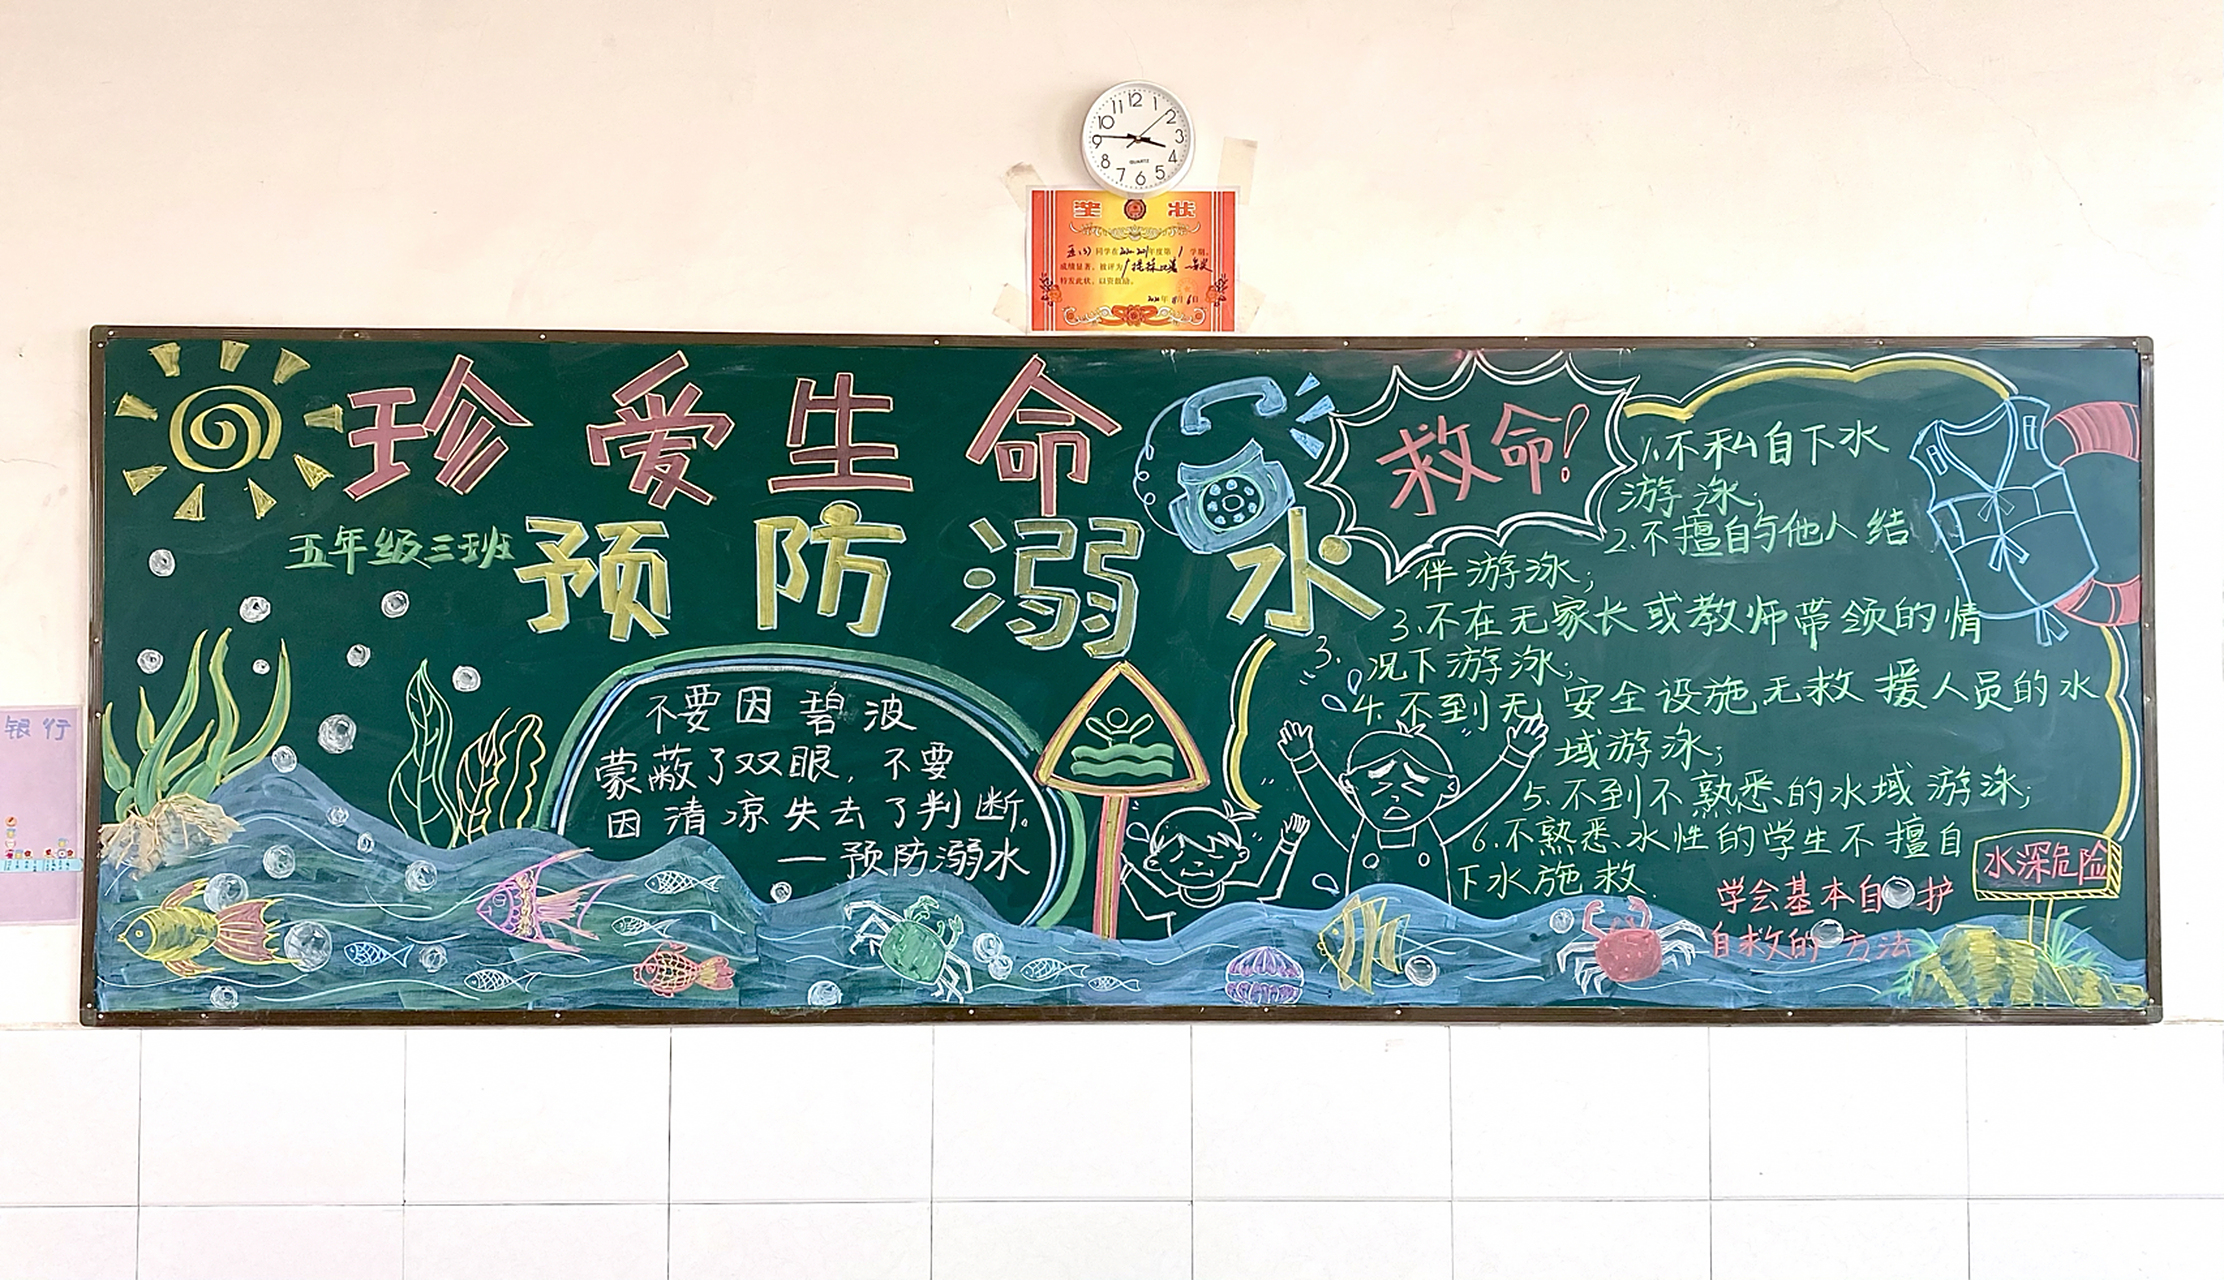 12
1
2
3
4
5
6
7
8
9
10
11
QUARTZ
奖 状
同学在 年度第1学期,
成绩显著,被评为
特发此状,以资鼓励。
银行
珍爱生命
预防溺水
五年级三班
不要因碧波
蒙蔽了双眼,不要
因清凉失去了判断。
—预防溺水
救命!
1.不私自下水
游泳;
2.不擅自与他人结
伴游泳;
3.不在无家长或教师带领的情
3.
况下游泳;
4.不到无安全设施无救援人员的水
域游泳;
5.不到不熟悉的水域游泳;
6.不熟悉水性的学生不擅自
下水施救.
学会基本自护
自救的方法
水深危险